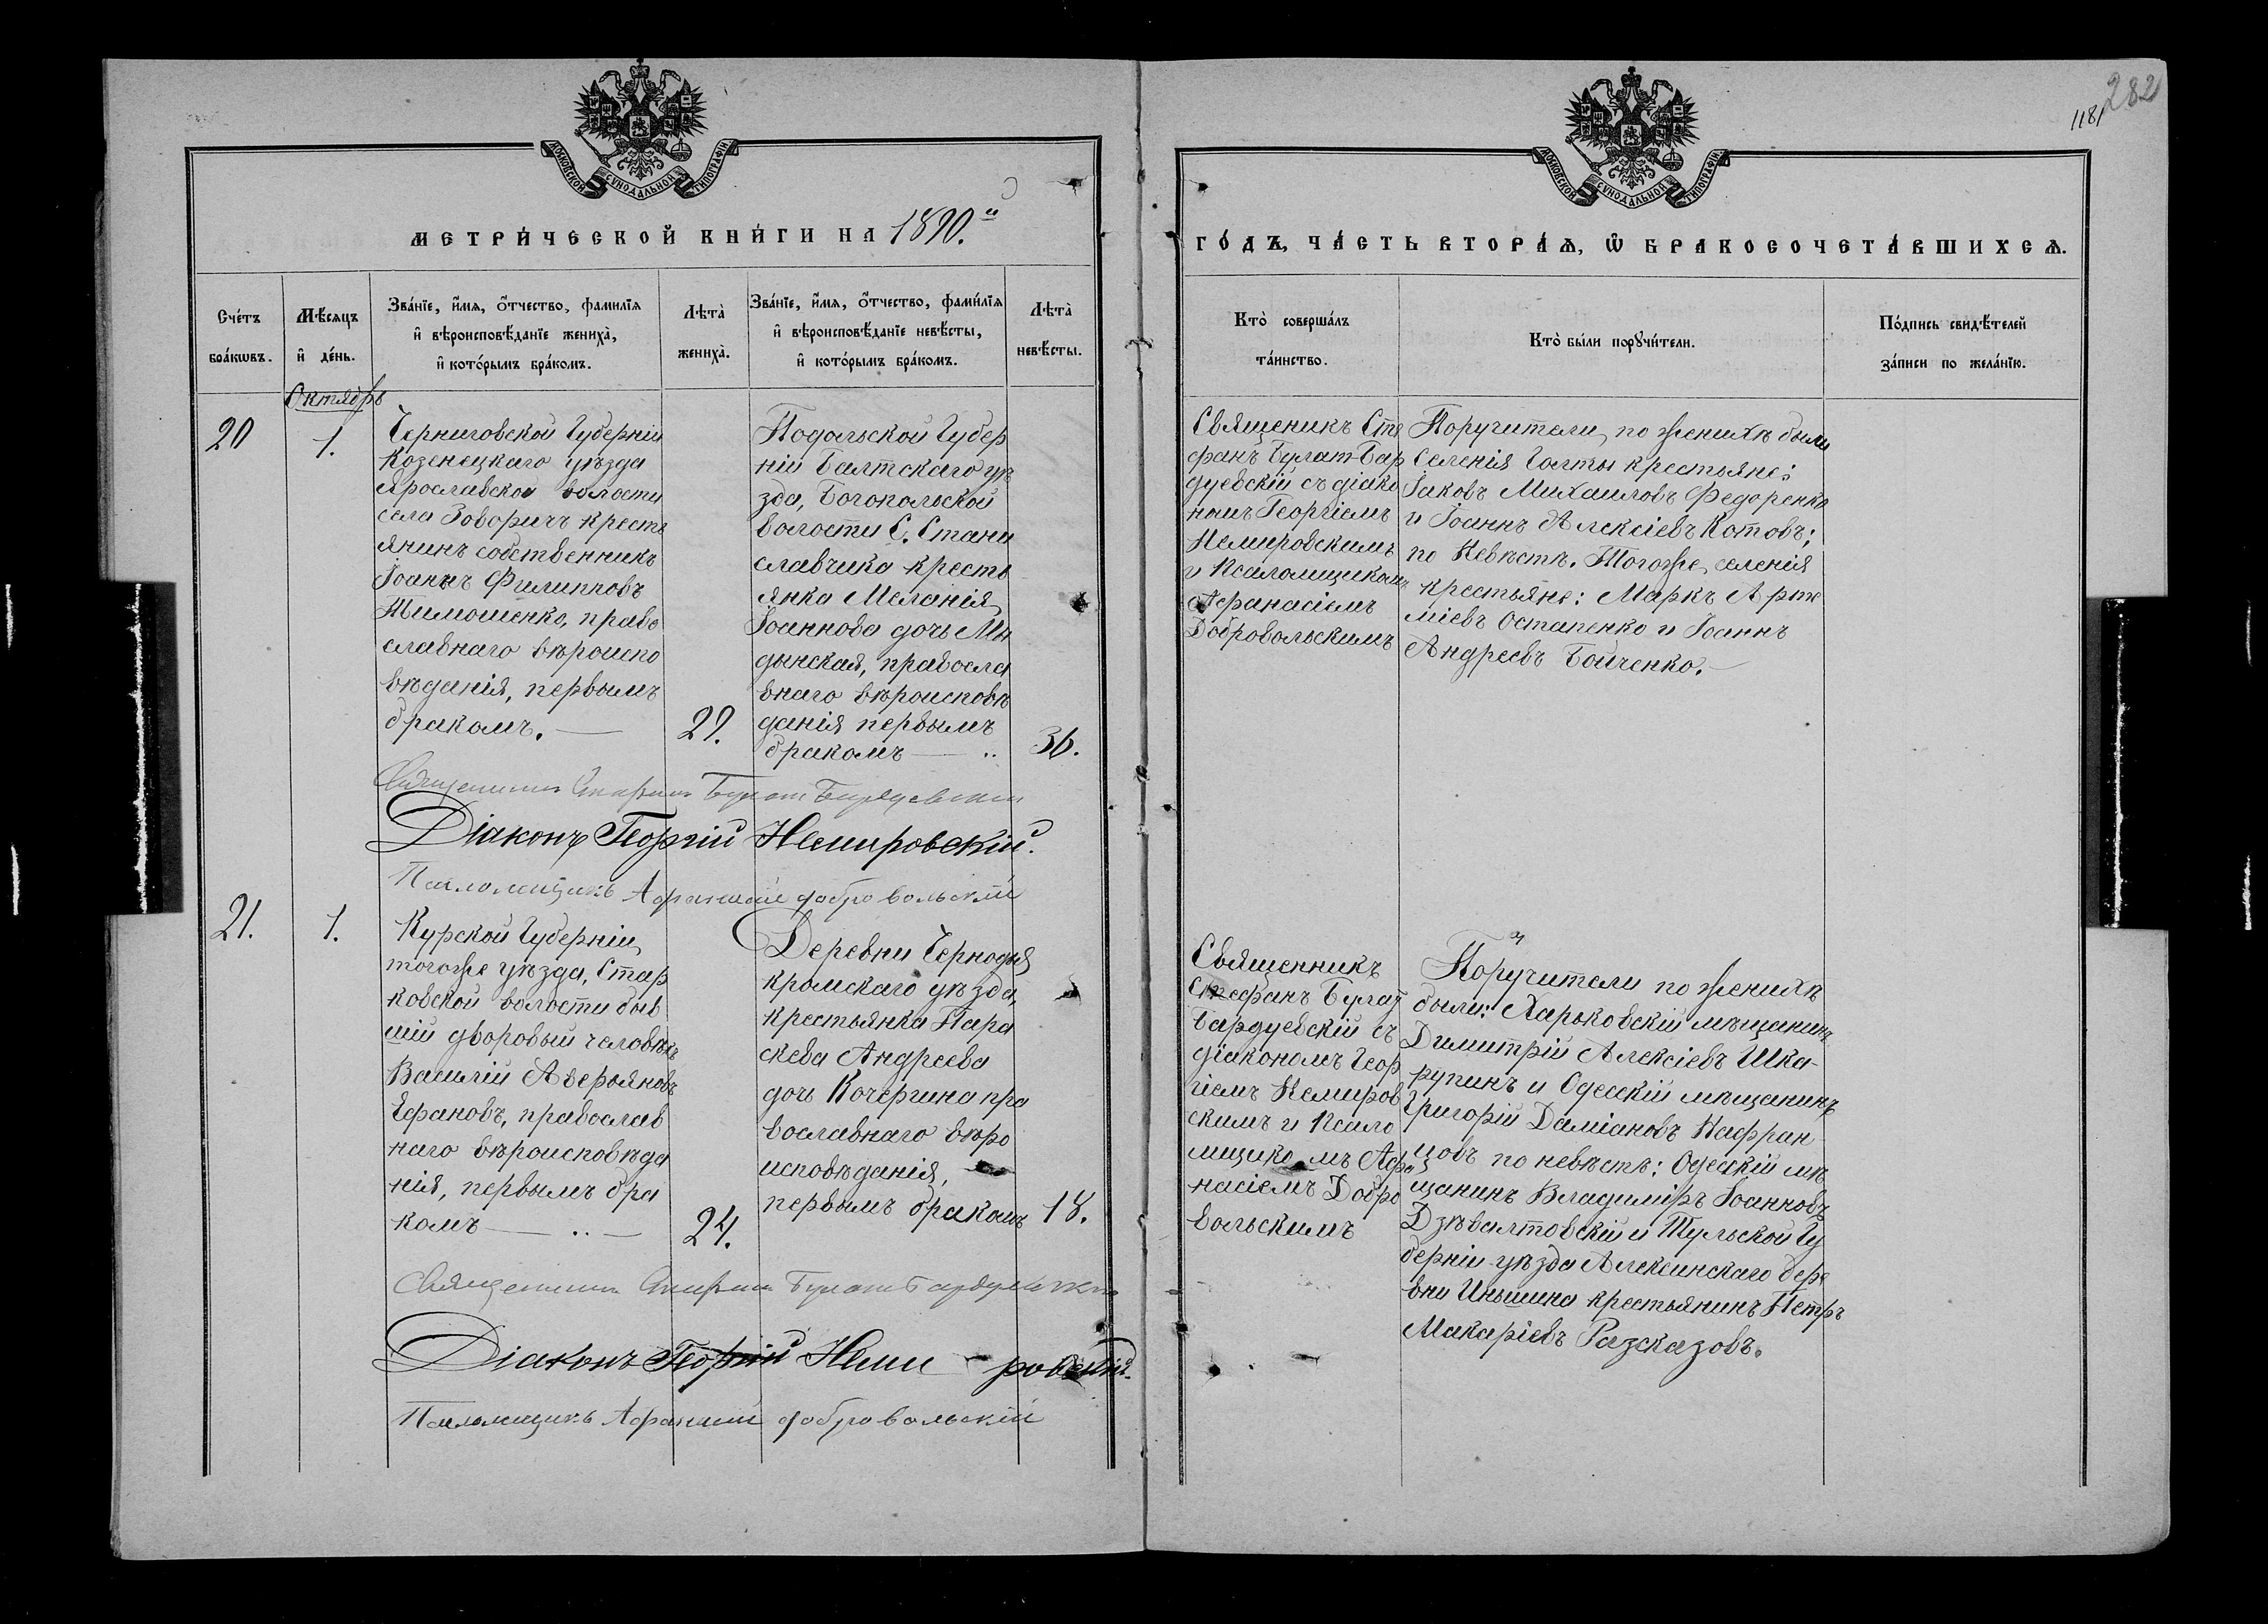 282
1181
МОСКОВСКОЙ СѴНОДАЛЬНОЙ ТИПОГРАФІИ
МОСКОВСКОЙ СѴНОДАЛЬНОЙ ТИПОГРАФІИ
МЕТРИ́ЧЕСКОЙ КНИ́ГИ НА 1890.й
ГО́ДЪ, ЧА́СТЬ ВТОРА́Я, Ѿ БРАКОСОЧЕТА́ВШИХСЯ.
Сче́тъ
бра́кѡвъ.
Мѣ́сяцъ
и҆ де́нь.
Зва́нїе, и҆́мя, о҆́тчество, фами́лїя
и҆ вѣроисповѣ́данїе жениха̀,
и҆ кото́рымъ бра́комъ.
Лѣта̀
жениха̀.
Зва́нїе, и҆́мя, о҆́тчество, фами́лїя
и҆ вѣроисповѣ́данїе невѣ́сты,
и҆ кото́рымъ бра́комъ.
Лѣта̀
невѣ́сты.
Кто̀ соверша́лъ
та́инство.
Кто̀ бы́ли порꙋчи́тели.
По́дпись свидѣ́телей
за́писи по жела́нїю.
Октябрь
20
1.
Черниговской Губерніи
Козенецкаго уѣзда
Ярославской волости
села Заворичъ кресть
янинъ собственникъ
Іоаннъ Филипповъ
Тимошенко, право
славнаго вѣроиспо
вѣданія, первымъ
бракомъ.
29.
Подольской Губер
ніи Балтскаго уѣ
зда, Богопольской
волости С. Стани
славчика кресть
янка Меланія
Іоаннова дочь Мы
дынская, правосла
внаго вѣроисповѣ
данія первымъ
бракомъ
36.
Священикъ Сте
фанъ Булат-Бар
дуевскій съ діако
номъ Георгіемъ
Немировскимъ
и Псаломщикомъ
Афанасіемъ
Добровольскимъ
Поручители по женихѣ были
Селенія Голты крестьяне:
Іаковъ Михаиловъ Федоренко
и Іоаннъ Алексіевъ Котовъ;
по Невѣстѣ. Тогоже селенія
крестьяне: Маркъ Арте
міевъ Остапенко и Іоаннъ
Андреевъ Бойченко.
Священникъ Стефанъ Булат Бардуевскій
Діаконъ Георгій Немировскій.
Псаломщикъ Афанасій Добровольскій
21.
1.
Курской Губерніи
тогоже уѣзда, Стар
ковской волости быв
шій дворовый человѣкъ
Василій Аверьяновъ
Ефановъ, православ
наго вѣроисповѣда
нія, первымъ бра
комъ
24.
Деревни Чернодья
кромскаго уѣзда,
крестьянка Пара
скева Андреева
дочь Кочергина пра
вославнаго вѣро
исповѣданія,
первымъ бракомъ
18.
Священникъ
Стефанъ Булат
Бардуевскій съ
діакономъ Геор
гіемъ Немиров
скимъ и Псало
мщикомъ Афа
насіемъ Добро
вольскимъ
Поручители по женихѣ
были: Харьковскій мѣщанинъ
Димитрій Алексіевъ Шка-
рупинъ и Одесскій мѣщанинъ
Григорій Даміановъ Кафран
цовъ по невѣстѣ: Одесскій мѣ
щанинъ Владиміръ Іоанновъ
Дзѣвалтовскій и Тульской Гу
берніи уѣзда Алексинскаго дере
вни Иньшино крестьянинъ Петръ
Макаріевъ Разсказовъ.
Священникъ Стефанъ Булат Бардуевскій
Діаконъ Георгій Неми - ровскій.
Псаломщикъ Афанасій Добровольскій